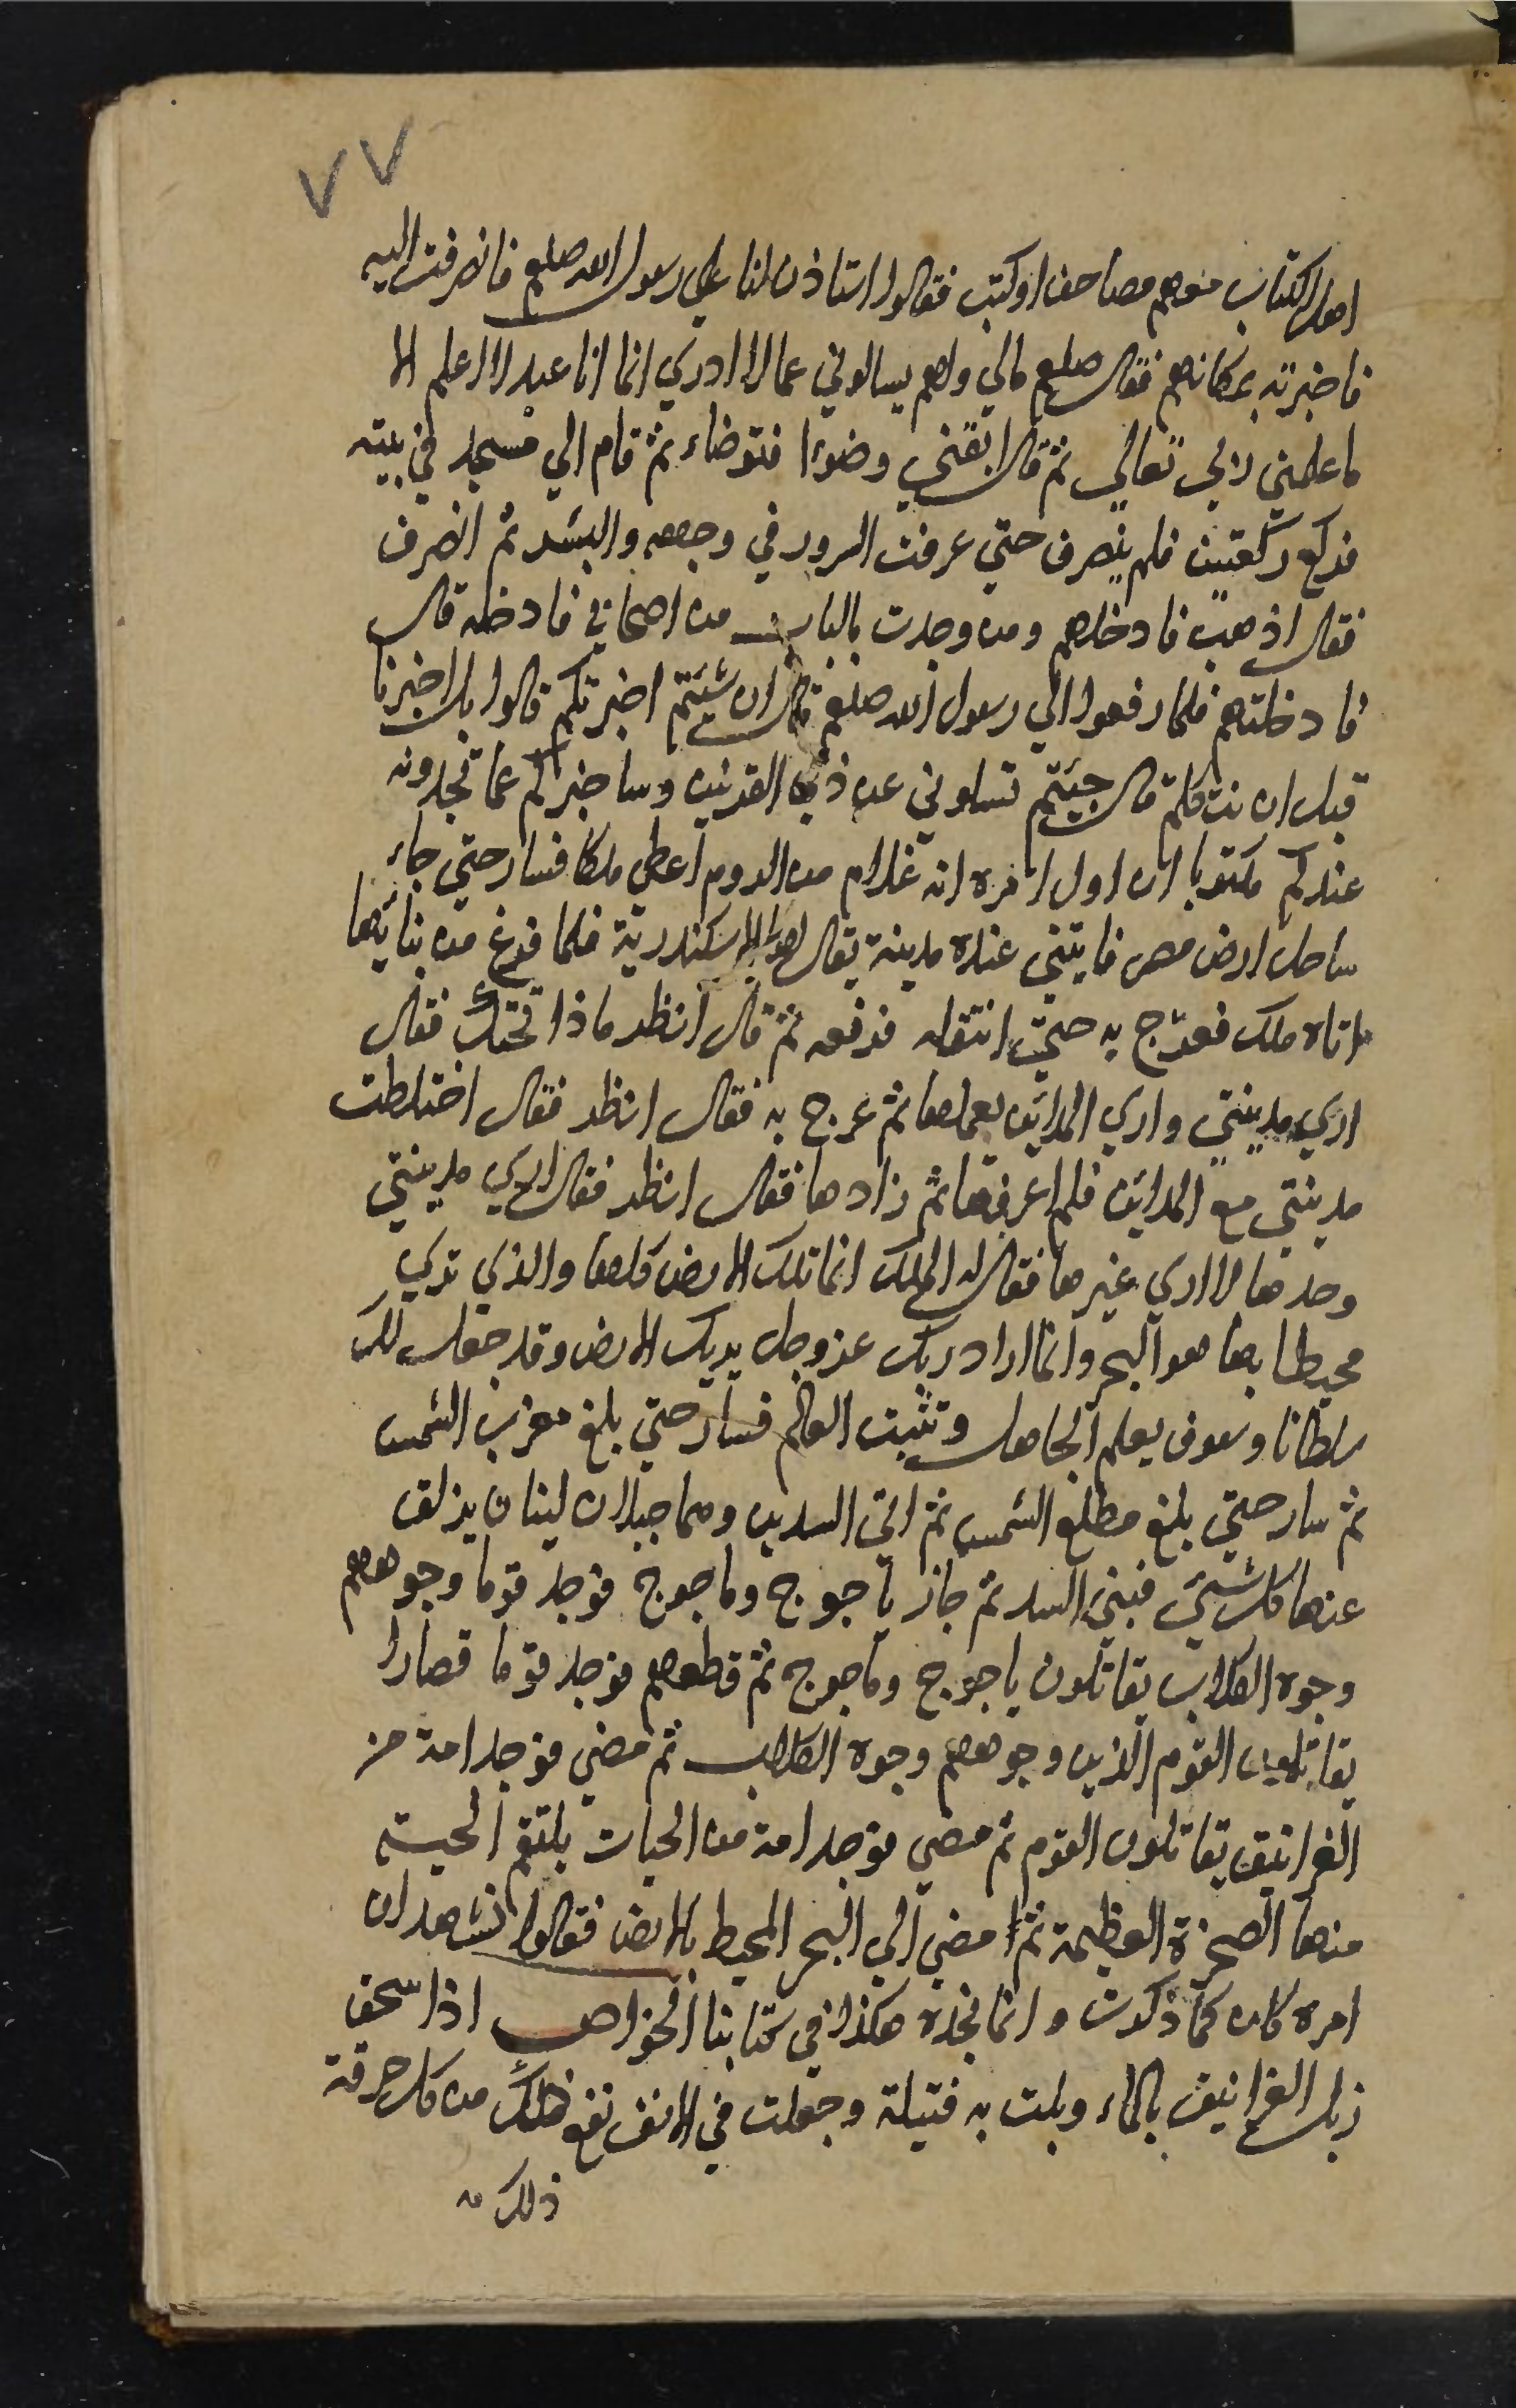 ٧٧
اهل الكتاب معهم مصاحف او كتب فقالوا استاذن لنا علي رسول الله صلعم فانصرفت اليه
فاخبرته بمكانهم فقال صلعم مالي ولهم يسالوني عما لا ادري انما انا عبد لا اعلم الا
ما علمني ربي تعالي ثم قال ابغني وضوءا فتوضاء ثم قام الي مسجد في بيته
فركع ركعتين فلم ينصرف حتي عرفت السرور في وجهه والبشر ثم انصرف
فقال اذهب فادخلهم ومن وجدت بالباب من اصحابي فادخله قال
فادخلتهم فلما رفعوا الي رسول الله صلعم قال ان شيئتم اخبرتكم قالوا بل اخبرنا
قبل ان نتكلم قال جيئتم تسلوني عن ذي القرنين وساخبركم عما تجدونه
عندكم مكتوبا ان اول امره انه غلام من الروم اعطي ملكا فسار حتي جاء
ساحل ارض مصر فابتني عنده مدينة يقال لها الاسكندرية فلما فرغ من بنائها
اتاه ملك فعرج به حتي انتقله فرفعه ثم قال انظر ماذا تحتك فقال
اري مدينتي واري المدائن بعملها ثم عرج به فقال انظر فقال اختلطت
مدينتي مع المداين فلم اعرفها ثم زادها فقال انظر فقال اري مدينتي
وحدها لا اري غيرها فقال له الملك انما تلك الارض كلها والذي تري
محيطا بها هو البحر وانما اراد ربك عز وجل يريك الارض وقد جعل لك
سلطانا وسوف يعلم الجاهل وتثبت العالم فسار حتي بلغ مغرب الشمس
ثم سار حتي بلغ مطلع الشمس ثم اتي السدين وهما جبلان لينان يزلق
عنهما كل شيئ فبني السد ثم جاز ياجوج وماجوج فوجد قوما وجوههم
وجوه الكلاب يقاتلون ياجوج وماجوج ثم قطعهم فوجد قوما قصارا
يقاتلون القوم الذين وجوههم وجوه الكلاب ثم مضي فوجد امة من
الغرانيق يقاتلون القوم ثم مضي فوجد امة من الحيات يلتقم الحية
منها الصخرة العظيمة ثم مضي الي البحر المحيط بالارض فقالوا نشهد ان
امره كان كما ذكرت وانما نجده هكذا في كتابنا الخواص اذا سحق
زبل الغرانيق بالماء وبلت به فتيلة وجعلت في الانف نفع ذلك من كل حرقة
ذلك